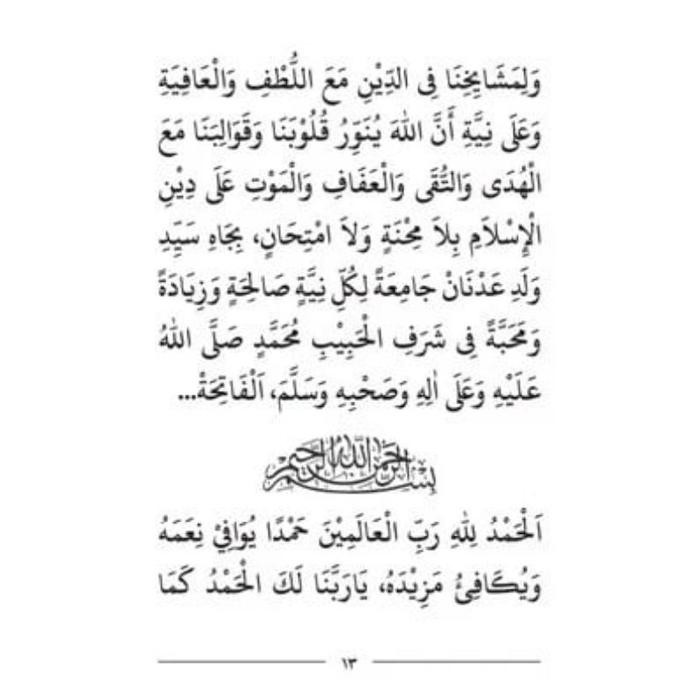 وَلِمَشَايِخِنَا فِى الدِّيْنِ مَعَ اللُّطْفِ وَالْعَافِيَةِ
وَعَلَى نِيَّةِ أَنَّ اللهَ يُنَوِّرُ قُلُوْبَنَا وَقَوَالِبَنَا مَعَ
الْهُدَى وَالتُّقَى وَالْعَفَافِ وَالْمَوْتِ عَلَى دِيْنِ
الْإِسْلَامِ بِلاَ مِحْنَةٍ وَلاَ امْتِحَانٍ، بِجَاهِ سَيِّدِ
وَلَدِ عَدْنَانْ جَامِعَةً لِكُلِّ نِيَّةٍ صَالِحَةٍ وَزِيَادَةً
وَمَحَبَّةً فِى شَرَفِ الْحَبِيْبِ مُحَمَّدٍ صَلَّى اللهُ
عَلَيْهِ وَعَلَى اٰلِهِ وَصَحْبِهِ وَسَلَّمَ، اَلْفَاتِحَةْ...
بِسْمِ اللهِ الرَّحْمٰنِ الرَّحِيْمِ
اَلْحَمْدُ لِلهِ رَبِّ الْعَالَمِيْنَ حَمْدًا يُوَافِيْ نِعَمَهُ
وَيُكَافِئُ مَزِيْدَهُ، يَارَبَّنَا لَكَ الْحَمْدُ كَمَا
١٣